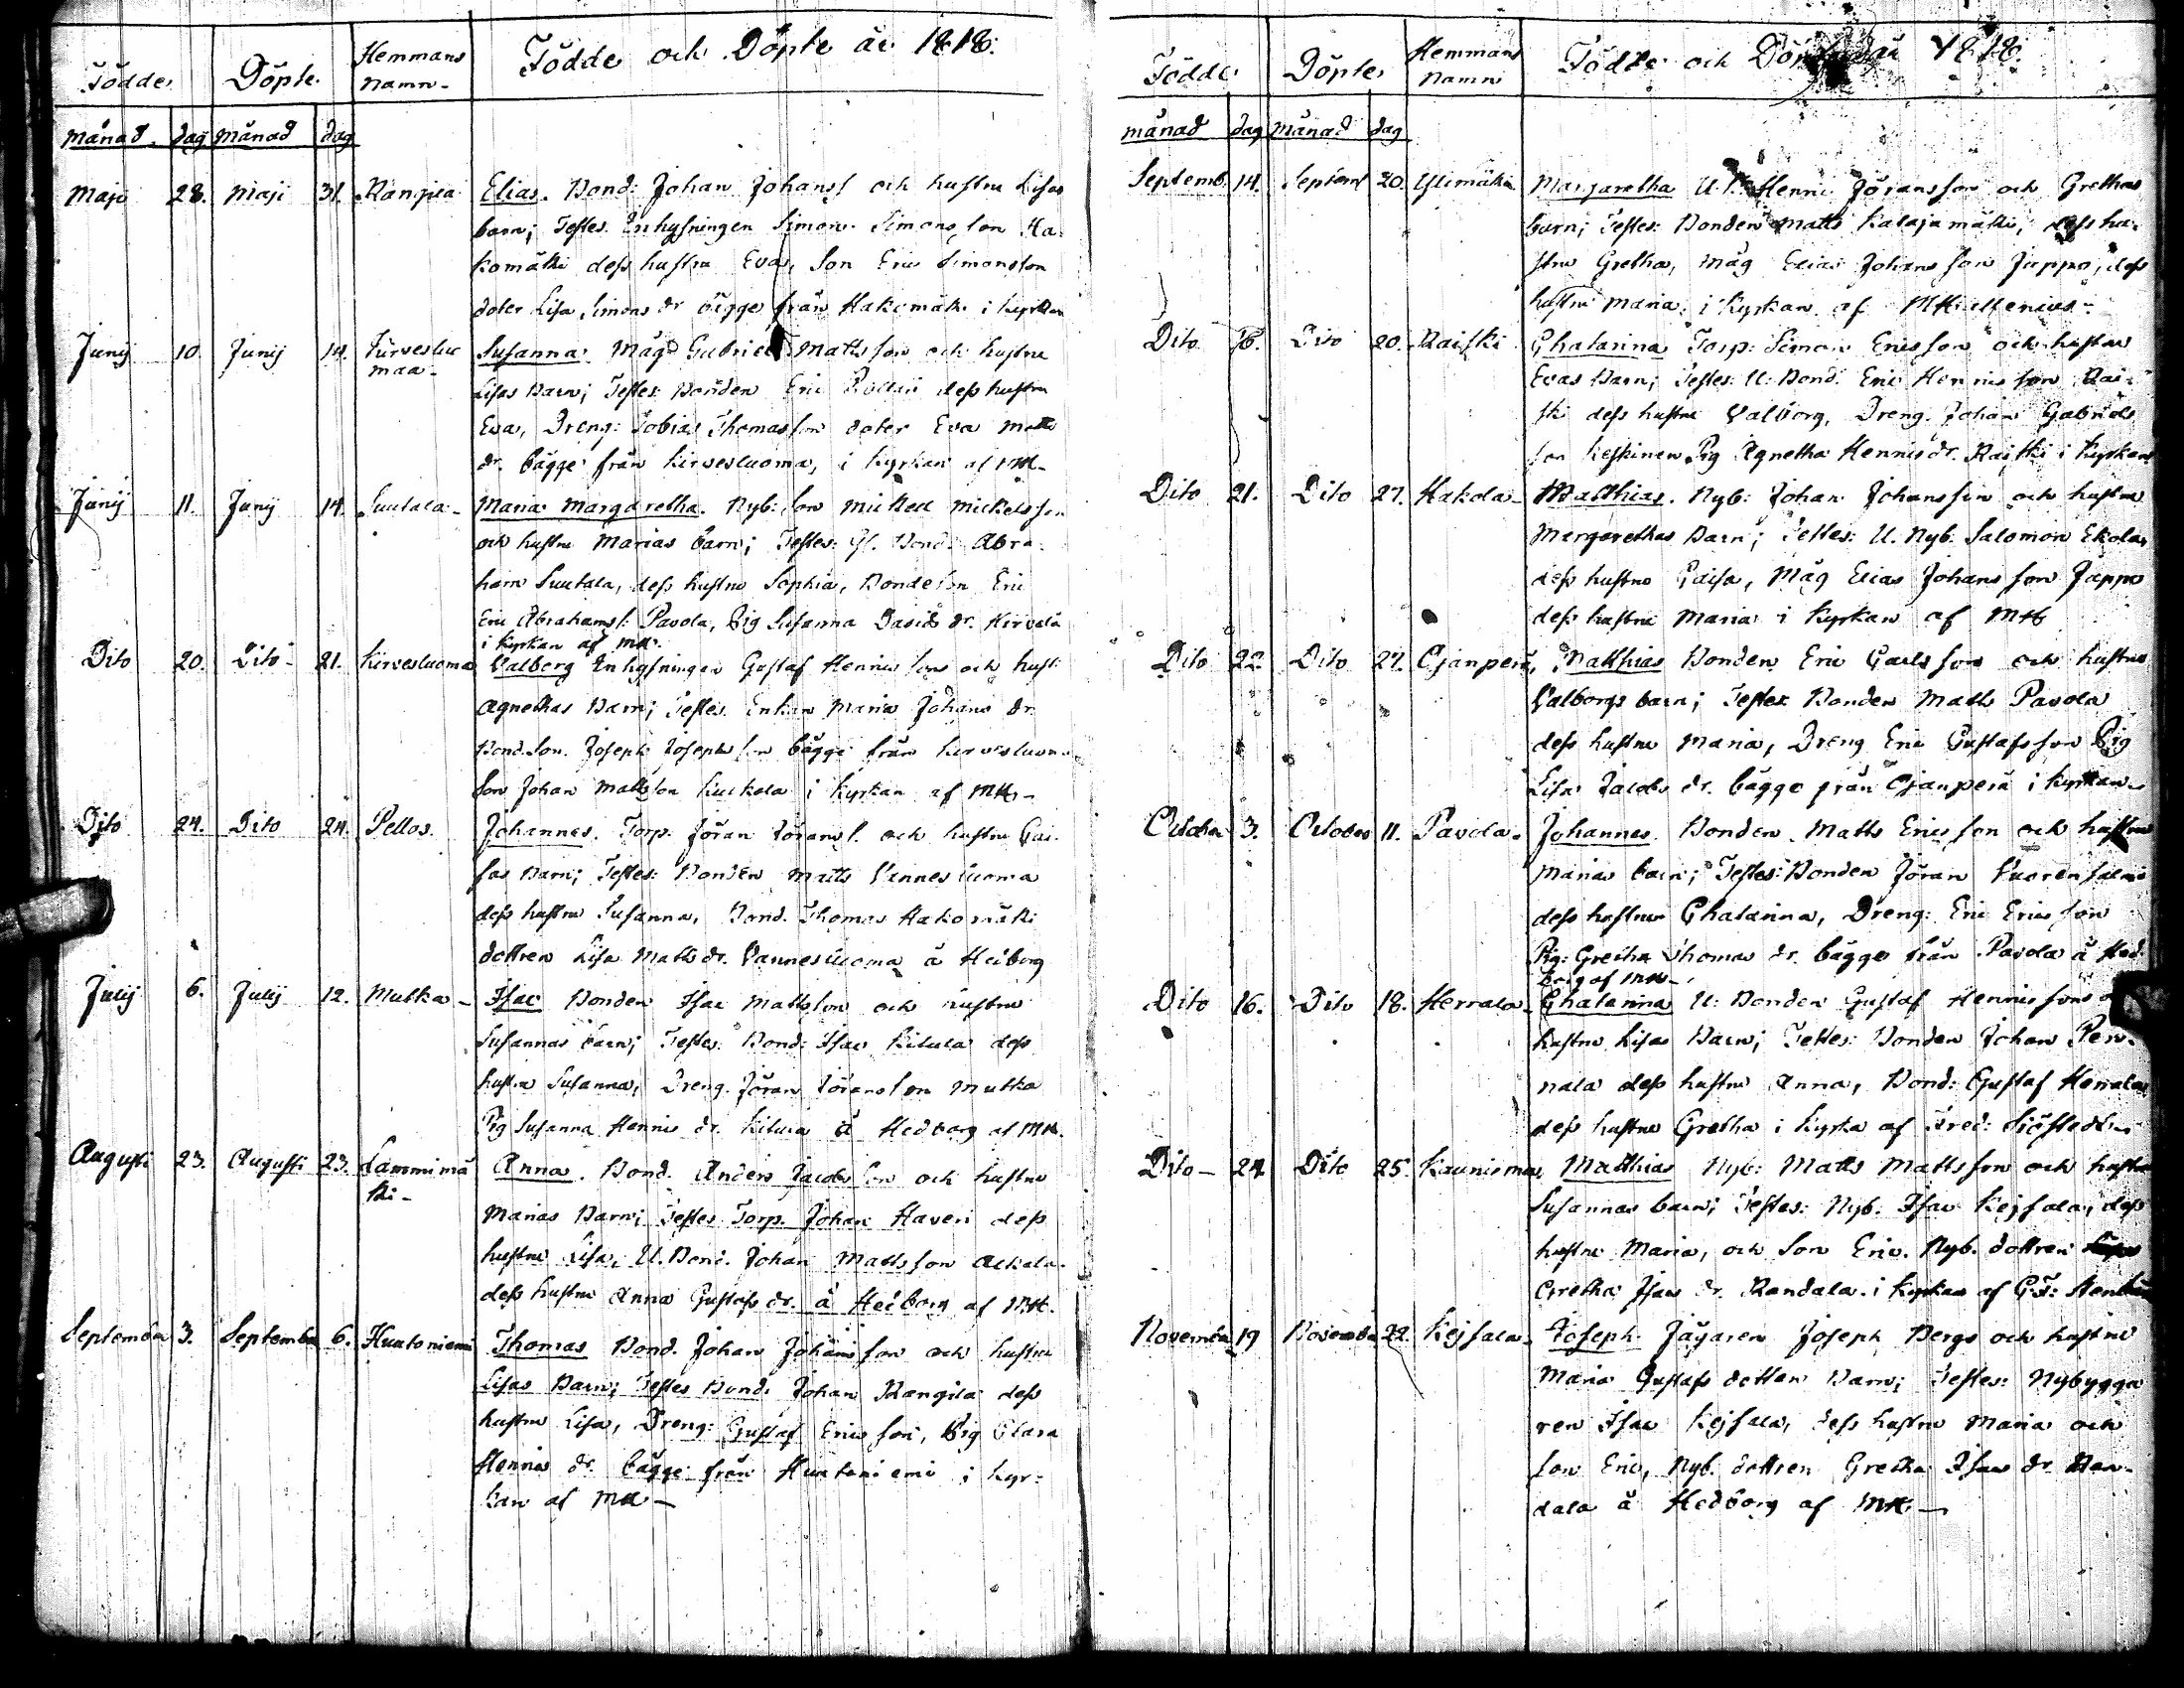 Födde Döpte Hemmans Namn Födde och Döpte år 1818.
månad dag månad dag
Maji 28. Maji 31. Elias. Bond: Johan Johans f och hustru Lisas
barn; Testes Inhysningen Simon Simons son Ha-
komäki dess hustru Eva, Son Eric Simonsson
doter Lisa Simons dr bägge från Hakomäki i kyrkan
Junij 10. Junij 14. Kirvesluo
maa
Susanna. Måg Gabriel Matts son och hustru
Lisas Barn; Testes: Bonden Eric dess hustru
Eva, Dreng: Tobias Thomas son doter Eva Matts
dr. bägge från Kirvesluoma, i kyrkan af MH
Junij 11. Junij 14. Luutala
Maria Margaretha. Nyb: son Mickel Mickelsson
och hustru Marias barn; Testes: Gl. Bond: Abra-
ham Luutala, dess hustru Sophia, Bonde son Eric
Eric Abrahams f: Pavola, Pig Susanna Davids dr. Hirvelä
i kyrkan af MH.
Dito 20. Dito 21. Kirvesluoma Valberg Inhysningen Gustaf Hennis sons och hust:
Agnethas Barn; Testes Enkan Maria Johans dr.
Bond. Son. Joseph Josephs son bägge från Kirvesluoma
Son Johan Mattsson Kuckola i kyrkan af MH
Dito 24. Dito 24. Pellos. Johannes. Torp. Jöran Jörans f. och hustru Cai-
sas Barn; Testes: Bonden Matts Vannesluoma
dess hustru Susanna, Bond. Thomas Hakomäki
dottren Lisa Matts dr. Vannesluoma å Hedborg
Julij 6. Julij 12. Mutka Isac Bonden Isac Mattsson och hustru
Susannas barn; Testes: Bond: Isac Kitula dess
hustru Susanna, Dreng. Jöran Jöransson Mutka
Pig Susanna Hennis dr. Kitula å Hedborg af MH.
Augusti 23. Augusti 23. Lamminmä
ki
Anna. Bond. Anders Jacobs son och hustru
Marias Barn; Testes Torp. Johan Haveri dess
hustru Lisa, U. Bond. Johan Mattsson Ackala
dess hustru Anna Gustafs dr. å Hedborg af MH.
September 3. September 6. Huutoniemi Thomas Bond. Johan Johans son och hustru
Lisas Barn; Testes Bond: Johan Rangila dess
hustru Lisa, Dreng: Gustaf Erics son, Pig Clara
Hennis dr. bägge från Huutoniemi i kyr-
kan af MH
Födde Döpte Hemmans Namn Födde och 1818.
månad dag månad dag
Septemb. 14. Septemb 20. Ylimäki Margaretha U. Henric Jöransson och Grethas
barn; Testes: Bonden Matts Kalajamäki, dess hu-
stru Gretha, Måg Elias Johansson Jappo, dess
hustru Maria i kyrkan af M
Dito 16. Dito 20. Raiski Chatarina Torp: Simon Ericsson och hustru
Evas Barn; Testes: U: Bond. Eric Hennis son Rai-
ski dess hustru Valborg, Dreng. Johan Gabriels
son Keskinen Pig Agnetha Hennis dr. Raiski i kyrkan
Dito 21. Dito 27. Hakola Matthias. Nyb: Johan Johansson och hustru
Margarethas Barn; Testes: U. Nyb: Salomon Ekola,
dess hustru Caisa, Måg Elias Johans son Jappo
dess hustru Maria i kyrkan af MH
Dito 22. Dito 27. Ojanperä, Matthias Bonden Eric Carls son och hustru
Valborgs barn; Testes: Bonden Matts Pavola
dess hustru Maria, Dreng Eric Gustafsson Pig
Lisa Jacobs dr. bägge från Ojanperä i kyrkan
October 3. October 11. Pavola Johannes. Bonden Matts Erics son och hustru
Marias barn; Testes: Bonden Jöran
dess hustru Chatarina, Dreng: Eric Erics son
Pig: Gretha Thomas dr. bägge från Pavola å Hed-
borg af MH
Dito 16. Dito 18. Herrala Chatarina U: Bonden Gustaf Hennis sons
hustru Lisas Barn; Testes: Bonden Johan Pen-
nala dess hustru Anna, Bond: Gustaf Herrala
dess hustru Gretha i kyrka af Fred: Sjöstedt
Dito 24 Dito 25. Kauniomaa, Matthias Nyb: Matts Mattsson och hustru
Susannas barn; Testes: Nyb. Isac Kejsala, dess
hustru Maria, och Son Eric. Nyb. dottren
Gretha Isacs dr. Randala i kyrkan af G.F:
November 19 November 22. Kejsala Joseph. Jägaren Joseph Bergs och hustru
Maria Gustafs dotters Barn; Testes: Nybygga
ren Isac Kejsala, dess hustru Maria och
son Eric, Nyb. dottren Gretha Isacs dr. Ran-
dala å Hedborg af MH